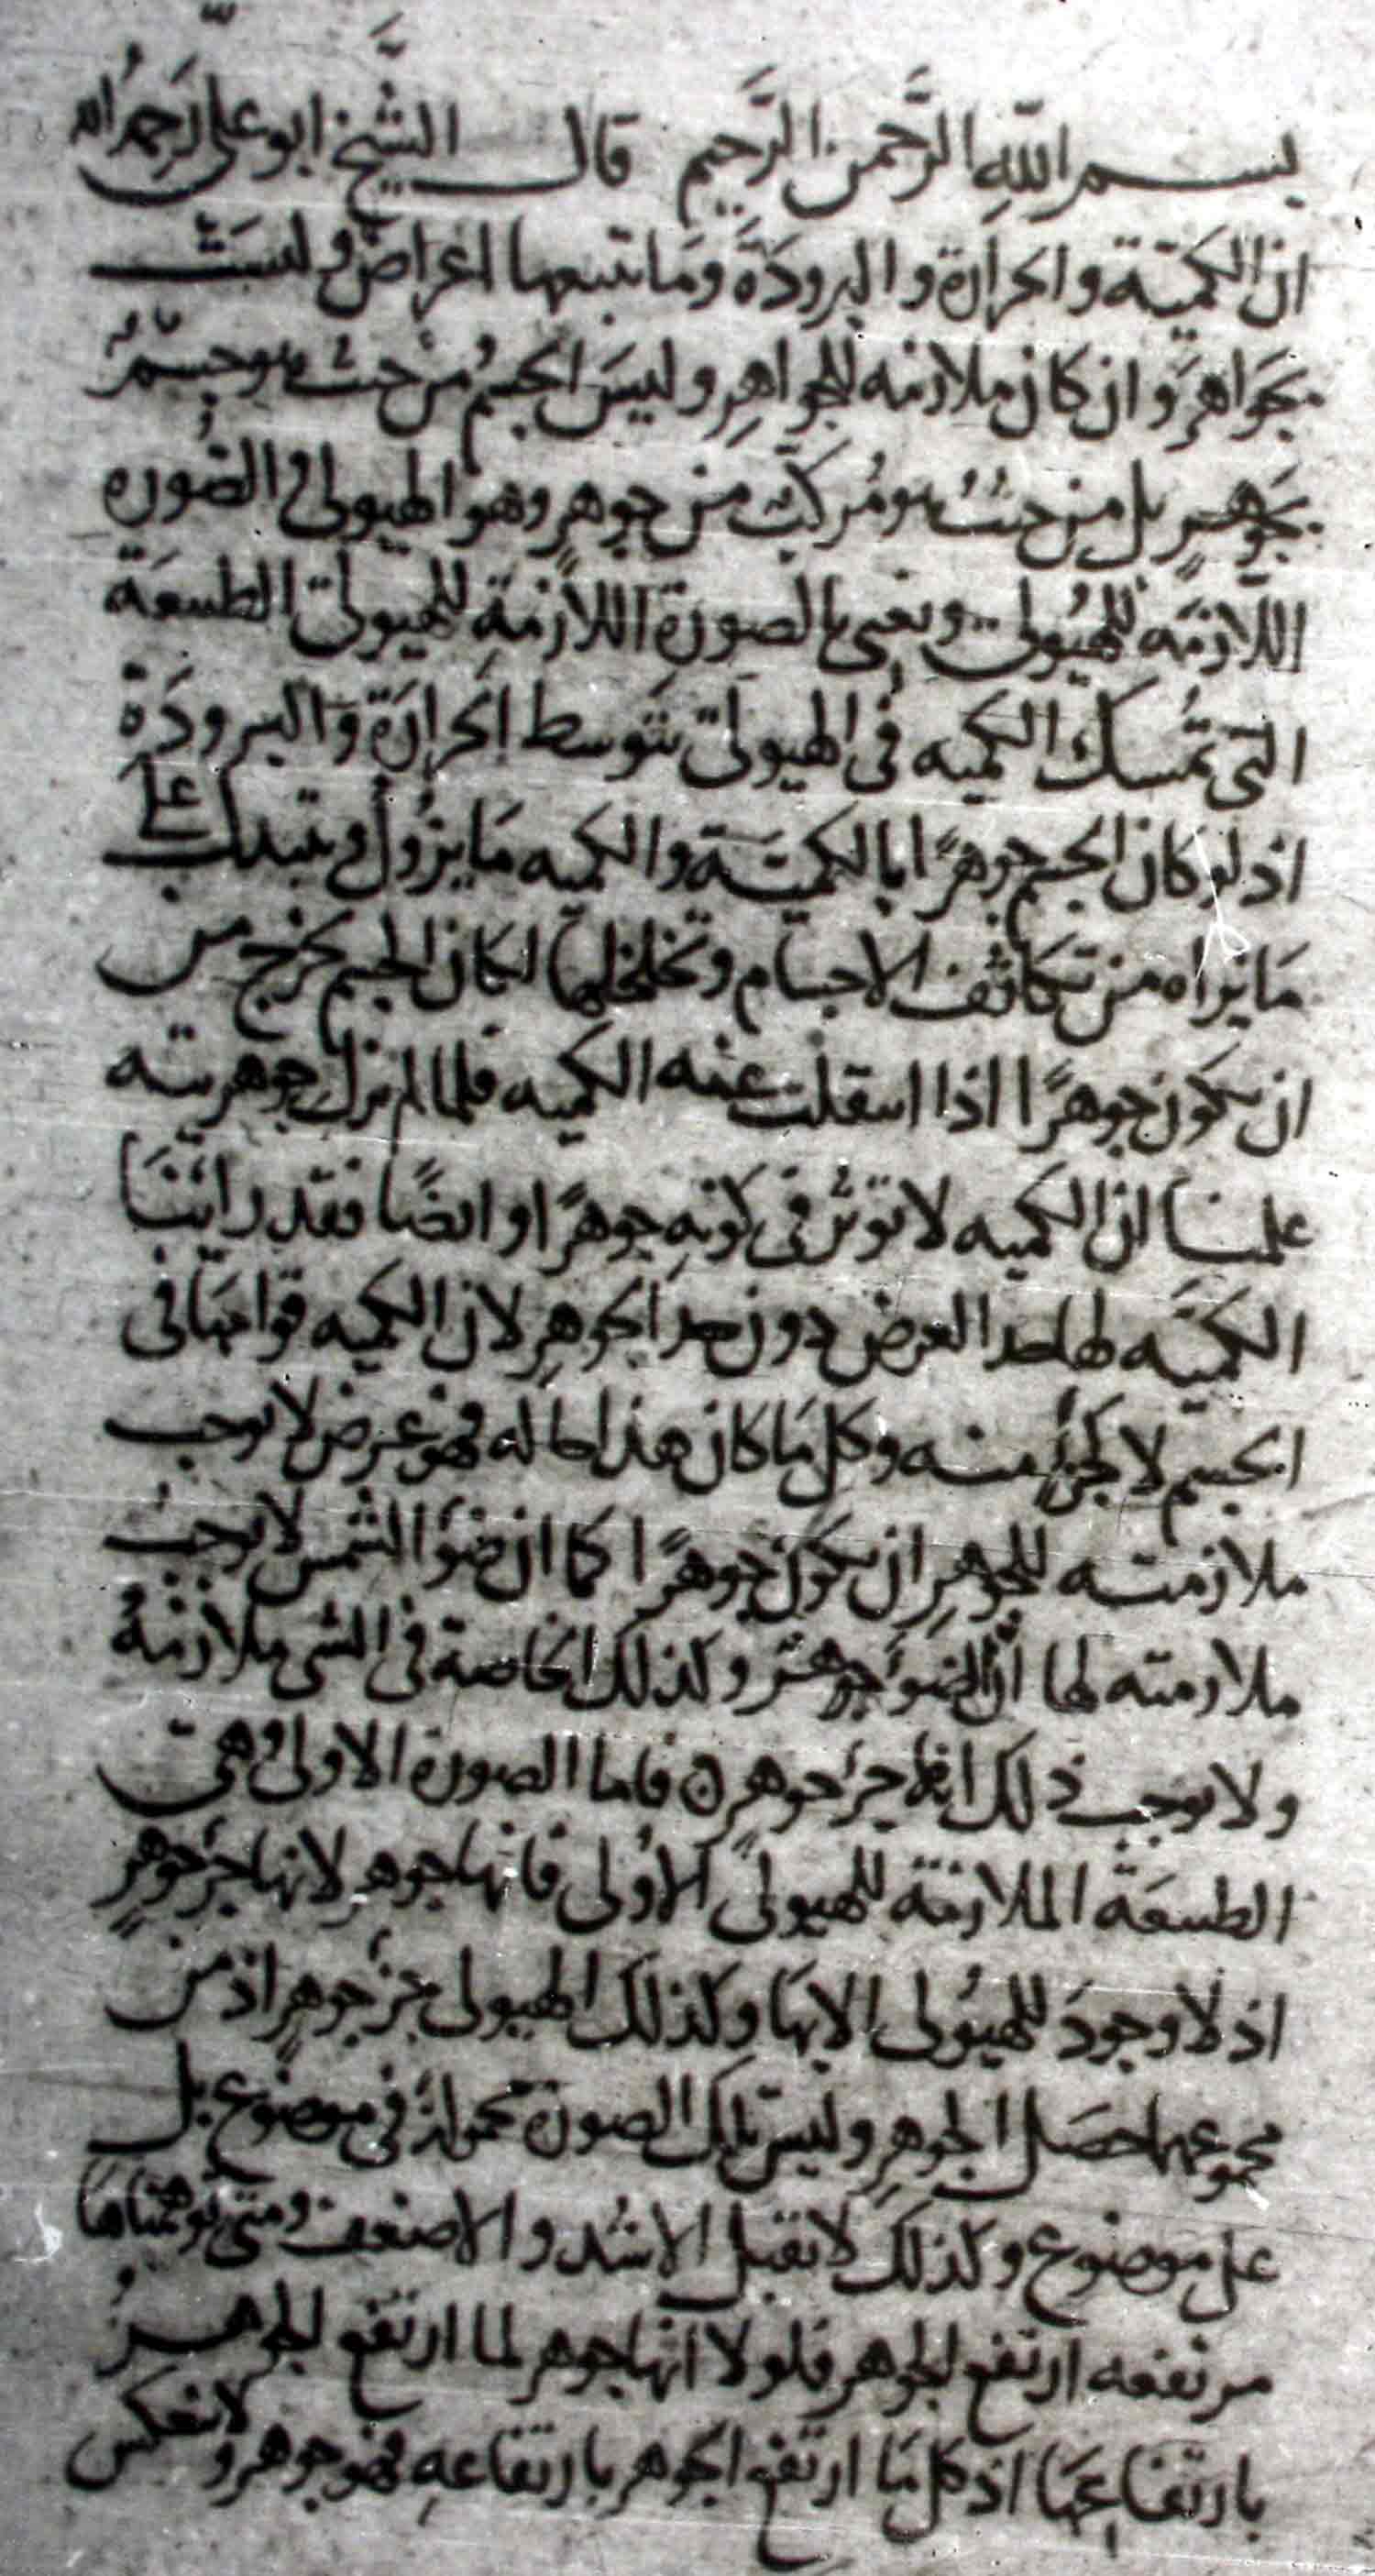 بسم الله الرَّحمن الرَّحيم قال الشَّيخ ابو علي رَحمهُ الله
ان الكميّة والحرارة والبرودَة وَما تتبعها اعراضٌ وليسَت
بجَواهرَ وان كان ملازمه للجواهرِ وليسَ الجسمُ من حيث هو جسمٌ
بجَوهرٍ بل من حيثُ هو مُركبٌ من جوهرٍ وهو الهيولى والصُورة
اللّازمَه للهيُولى ونعنى بالصورةِ اللازمةِ للهيولى الطبيعَة
التى تمُسك الكميه فى الهيولى بتَوسط الحَرارَة وَالبرودَة
اذ لو كان الجسم جوهرًا بالكميَّة والكميه مَا يزُول ويتبدل على
مَا نراه من تكاثف الاجسام وتخلخلها لكان الجسم يخرج من
ان يكون جوهرًا اذا انتقلت عنه الكميه فلما لم تزل جوهريته
علمنا ان الكميه لا تؤثر فى كونهِ جوهرًا وايضًا فقد رايَنا
الكميَّه لها حد العرض دون حد الجوهرِ لان الكميه قوامهَا فى
الجسم لا كجزءٍ منه وكل مَا كان هذا حاله فهو عرض لا يوجب
ملازمته للجوهرِ ان يكون جوهرًا كما ان ضوء الشمس لا يوجب
ملازمته لها انَّ الضوءَ جوهرٌ وكذلك الخاصة فى الشى ملازمةٌ
ولا يوجب ذلك انها جزء جوهرٍ فاما الصورة الاولى وهى
الطبيعَة الملازمة للهيولى الاولى فانها جوهر لانها جزء جَوهرٍ
اذ لا وجودَ للهيُولى الا بهَا وكذلك الهيولى جزء جوهرٍ اذ من
مجموعهما حصَل الجوهرِ وليس تلك الصورة محمولةً فى موضوع بل
على موضوع وكذلك لا تقبل الاشد والاضعف ومتى توهمناها
مرتفعه ارتفع الجوهر فلولا انها جوهر لما ارتفع الجوهرُ
بارتفاعِهَا اذ كل مَا ارتفع الجوهر بارتفاعهِ فهو جوهر ولا ينعكس